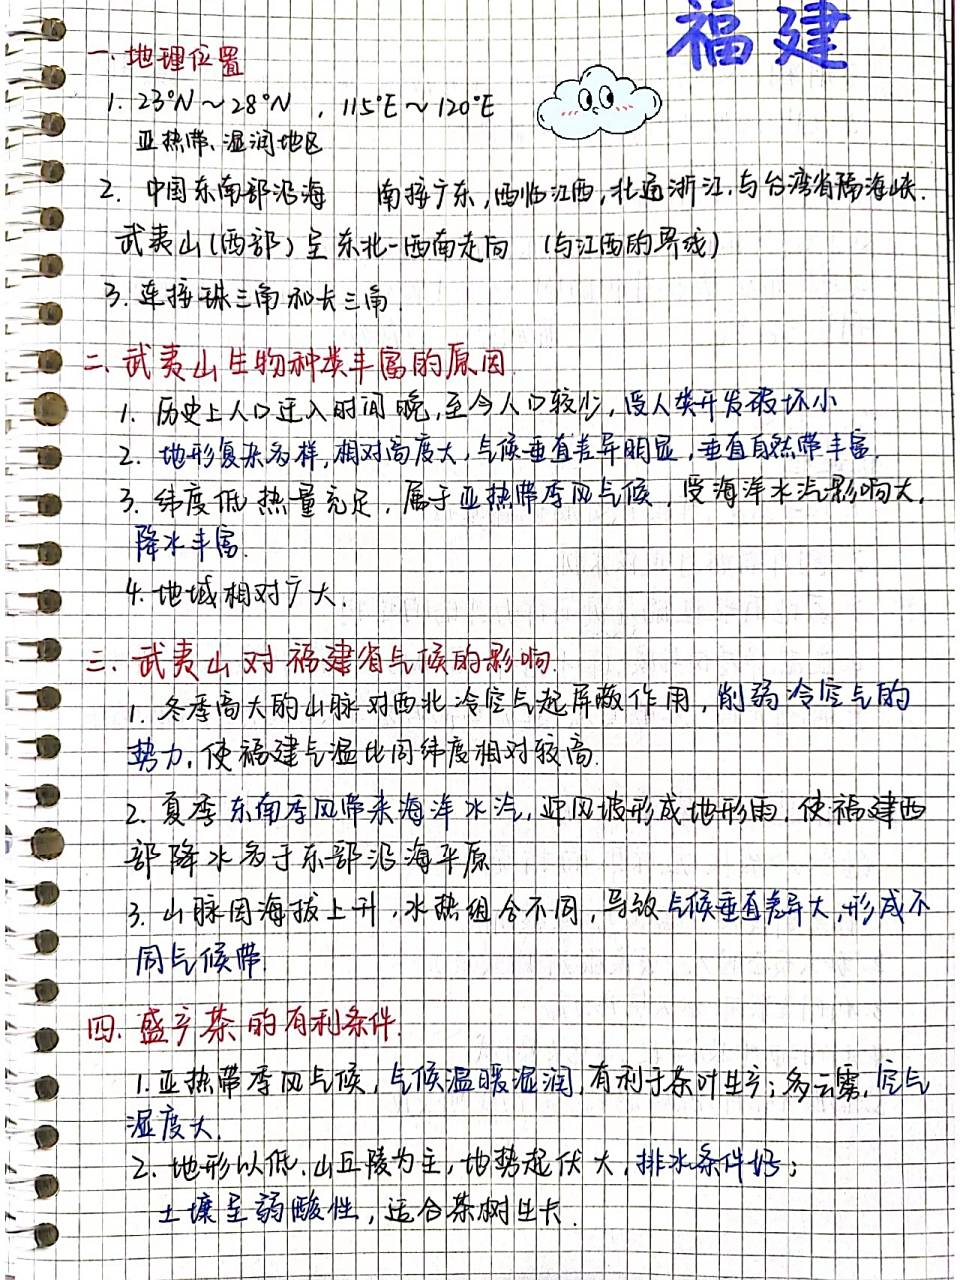 福建
一.地理位置
1. 23°N～28°N ，115°E～120°E
亚热带、湿润地区
2. 中国东南部沿海 南接广东，西临江西，北通浙江，与台湾省隔海峡.
武夷山(西部)呈东北-西南走向 (与江西的界线)
3. 连接珠三角和长三角.
二.武夷山生物种类丰富的原因.
1. 历史上人口迁入时间晚，至今人口较少，受人类开发破坏小
2. 地形复杂多样，相对高度大，气候垂直差异明显，垂直自然带丰富.
3. 纬度低热量充足，属于亚热带季风气候，受海洋水汽影响大，
降水丰富.
4. 地域相对广大.
三.武夷山对福建省气候的影响.
1. 冬季高大的山脉对西北冷空气起屏蔽作用，削弱冷空气的
势力，使福建气温比同纬度相对较高.
2. 夏季东南季风带来海洋水汽，迎风坡形成地形雨，使福建西
部降水多于东部沿海平原
3. 山脉因海拔上升，水热组合不同，导致气候垂直差异大，形成不
同气候带.
四.盛产茶的有利条件.
1. 亚热带季风气候，气候温暖湿润，有利于茶叶生产；多云雾，空气
湿度大.
2. 地形以低、山丘陵为主，地势起伏大，排水条件好；
土壤呈弱酸性，适合茶树生长.